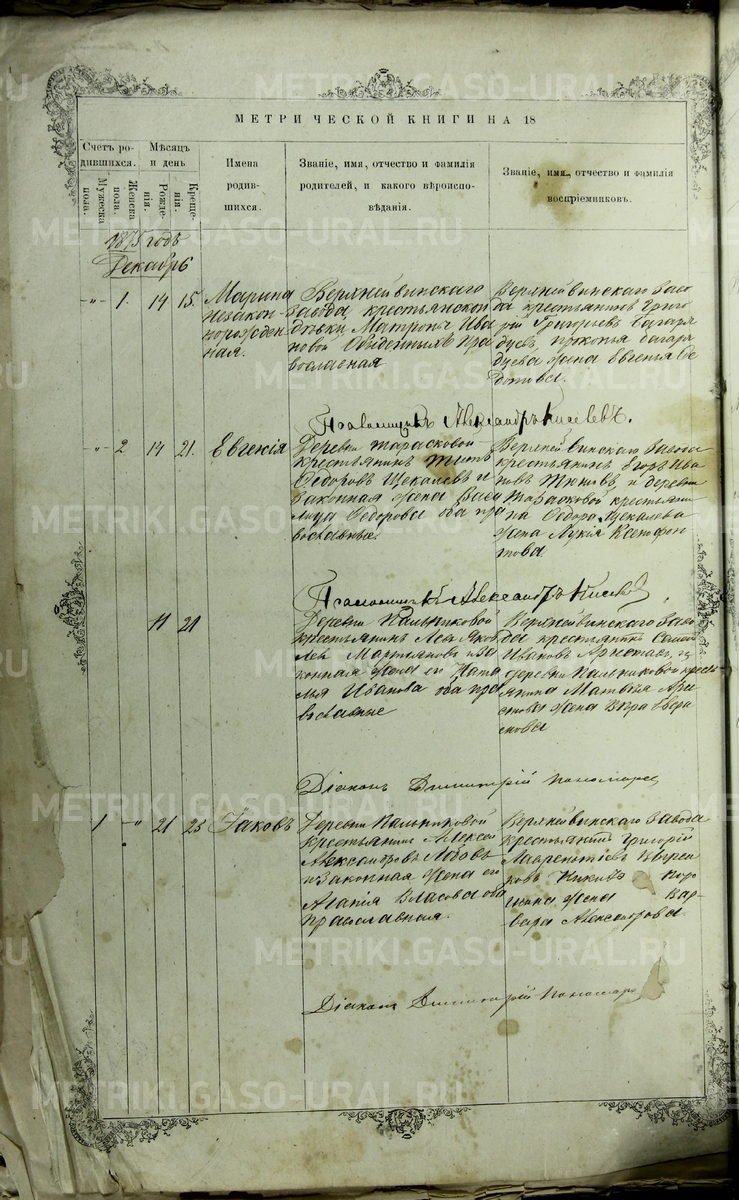 МЕТРИЧЕСКОЙ КНИГИ НА 18
Счетъ ро-
дившихся.
Мужеска
пола.
Женска
пола.
Мѣсяцъ
и день
Рожде-
нія.
Креще-
нія.
Имена
родив-
шихся.
Званіе, имя, отчество и фамилія
родителей, и какого вѣроиспо-
вѣданія.
Званіе, имя, отчество и фамилія
воспріемниковъ.
1875 годъ
Декабрь
-"- 1. 14 15.
Марина
незакон-
норожден
ная.
Верхнейвинскаго
завода крестьянской
дѣвки Матроны Ива
новой пра
вославная
Верхнейвинскаго заво
да крестьянинъ Григо
рій Григорьевъ
жена Евгенья Ѳе
Псаломщикъ Александръ Киселевъ.
-"- 2 14 21.
Евгенія
Деревни Тарасковой
крестьянинъ Титъ
Ѳедоровъ Щекалевъ и
законная жена Васи
лиса Ѳедорова оба пра
вославные.
Верхнейвинскаго завода
крестьянинъ Егоръ Ива
новъ и деревни
Тарасковой крестьяни
на Ѳедора Щекалева
жена Лукія Ксенофон
това
Псаломщикъ Александръ Киселев
11 21
Деревни Пальниковой
крестьянинъ Левъ Яков
левъ Мартьяновъ и за
конная жена его Ната
лья Иванова оба пра
вославные
Верхнейвинскаго заво
да крестьянинъ
Ивановъ и
деревни Пальниковой кресть
янина Матвѣя
жена Вѣра
Діаконъ Димитрій Пономарев
1 -"- 21 25
Іаковъ
Деревни Пальниковой
крестьянинъ Алексей
Александровъ Лобовъ
и законная жена его
Агапія Власова оба
православная.
Верхнейвинскаго завода
крестьянинъ Григорій
Лаврентьевъ
жена Вар
вара Александрова
Діаконъ Димитрій Пономарев
METRIKI.GASO-URAL.RU